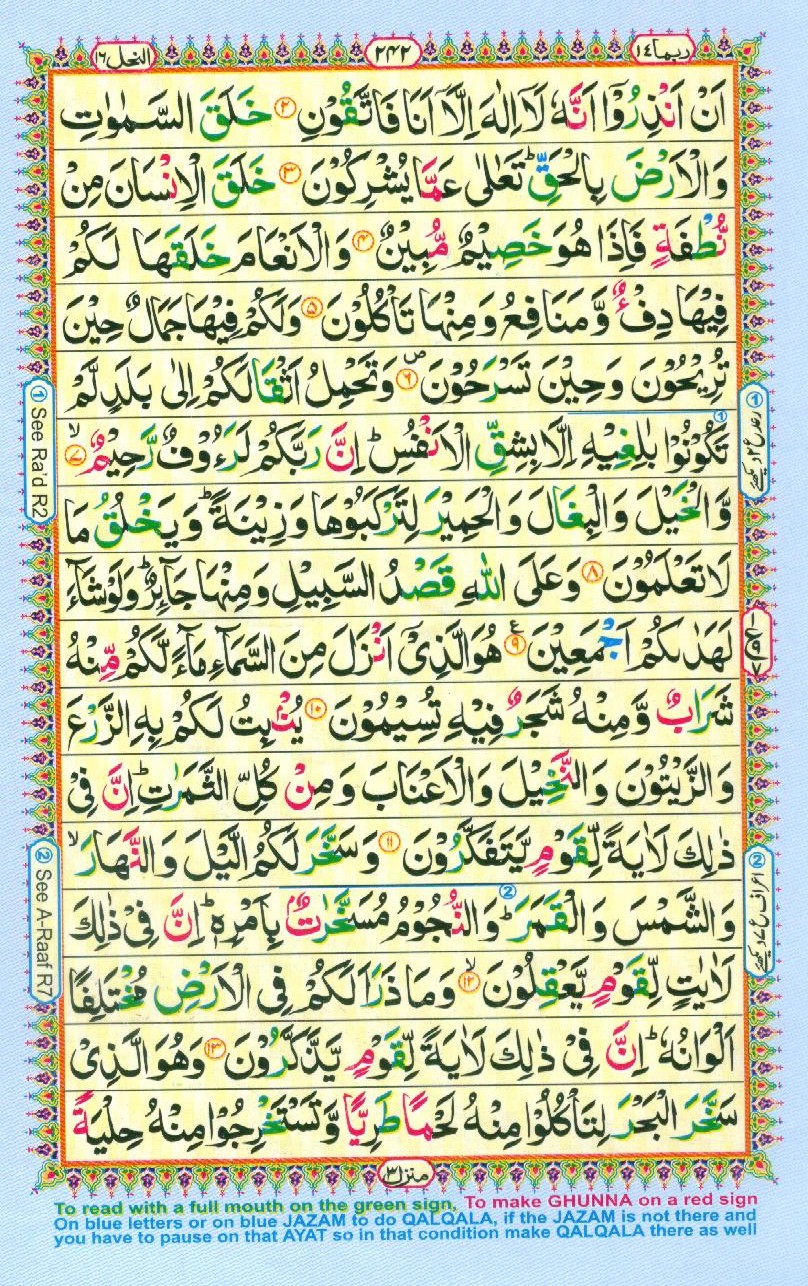 ربما ١٤
٢٤٢
النحل ١٦
اَنْ اَنْذِرُوْۤا اَنَّهٗ لَاۤ اِلٰهَ اِلَّاۤ اَنَا فَاتَّقُوْنِ ۝٢ خَلَقَ السَّمٰوٰتِ
وَالْاَرْضَ بِالْحَقِّ ؕ تَعٰلٰى عَمَّا يُشْرِكُوْنَ ۝٣ خَلَقَ الْاِنْسَانَ مِنْ
نُّطْفَةٍ فَاِذَا هُوَ خَصِيْمٌ مُّبِيْنٌ ۝٤ وَالْاَنْعَامَ خَلَقَهَا لَكُمْ
فِيْهَا دِفْءٌ وَّمَنَافِعُ وَمِنْهَا تَاْكُلُوْنَ ۝٥ وَلَكُمْ فِيْهَا جَمَالٌ حِيْنَ
تُرِيْحُوْنَ وَحِيْنَ تَسْرَحُوْنَ ۝٦ص وَتَحْمِلُ اَثْقَالَكُمْ اِلٰى بَلَدٍ لَّمْ
تَكُوْنُوْا بٰلِغِيْهِ اِلَّا بِشِقِّ الْاَنْفُسِ ؕ اِنَّ رَبَّكُمْ لَرَءُوْفٌ رَّحِيْمٌ ۝٧ۙ
وَّالْخَيْلَ وَالْبِغَالَ وَالْحَمِيْرَ لِتَرْكَبُوْهَا وَزِيْنَةً ؕ وَيَخْلُقُ مَا
لَا تَعْلَمُوْنَ ۝٨ وَعَلَى اللّٰهِ قَصْدُ السَّبِيْلِ وَمِنْهَا جَآىِٕرٌ ؕ وَلَوْ شَآءَ
لَهَدٰىكُمْ اَجْمَعِيْنَ ۝٩ع هُوَ الَّذِيْۤ اَنْزَلَ مِنَ السَّمَآءِ مَآءً لَّكُمْ مِّنْهُ
شَرَابٌ وَّمِنْهُ شَجَرٌ فِيْهِ تُسِيْمُوْنَ ۝١٠ يُنْۢبِتُ لَكُمْ بِهِ الزَّرْعَ
وَالزَّيْتُوْنَ وَالنَّخِيْلَ وَالْاَعْنَابَ وَمِنْ كُلِّ الثَّمَرٰتِ ؕ اِنَّ فِيْ
ذٰلِكَ لَاٰيَةً لِّقَوْمٍ يَّتَفَكَّرُوْنَ ۝١١ وَسَخَّرَ لَكُمُ الَّيْلَ وَالنَّهَارَ ۙ
وَالشَّمْسَ وَالْقَمَرَ ؕ وَالنُّجُوْمُ مُسَخَّرٰتٌۢ بِاَمْرِهٖ ؕ اِنَّ فِيْ ذٰلِكَ
لَاٰيٰتٍ لِّقَوْمٍ يَّعْقِلُوْنَ ۝١٢ۙ وَمَا ذَرَاَ لَكُمْ فِى الْاَرْضِ مُخْتَلِفًا
اَلْوَانُهٗ ؕ اِنَّ فِيْ ذٰلِكَ لَاٰيَةً لِّقَوْمٍ يَّذَّكَّرُوْنَ ۝١٣ وَهُوَ الَّذِيْ
سَخَّرَ الْبَحْرَ لِتَاْكُلُوْا مِنْهُ لَحْمًا طَرِيًّا وَّتَسْتَخْرِجُوْا مِنْهُ حِلْيَةً
① See Ra'd R2
② See A-Raaf R7
① رعد ع ٢ دیکھئے
② اعراف ع ٧ دیکھئے
منزل ٣
To read with a full mouth on the green sign, To make GHUNNA on a red sign
On blue letters or on blue JAZAM to do QALQALA, if the JAZAM is not there and
you have to pause on that AYAT so in that condition make QALQALA there as well